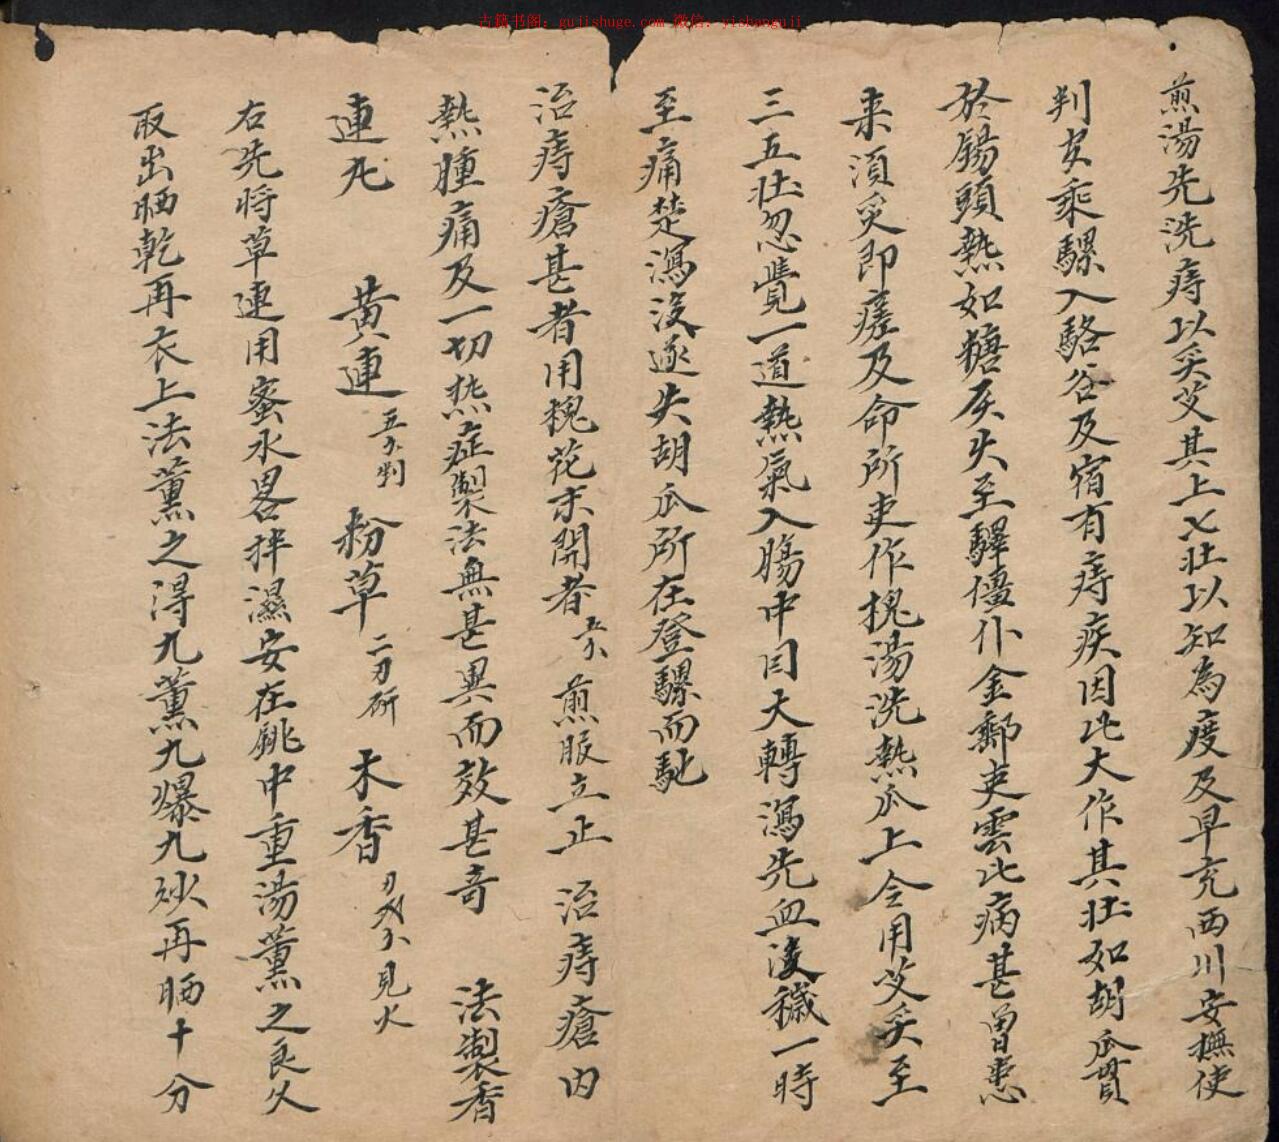 古籍书阁：gujishuge.com 微信：yishanguji
煎湯先洗痔以炙艾其上七壯以知為度及早充西川安撫使
判官乘騾入駱谷及宿有痔疾因此大作其壯如胡瓜貫
於腸頭熱如糖灰火至驛僵仆金郵吏雲此病甚曾患
来須炙即瘥及命所吏作槐湯洗熱瓜上令用艾炙至
三五壯忽覺一道熱氣入腸中因大轉瀉先血後穢一時
至痛楚瀉後遂失胡瓜所在登騾而馳
治痔瘡甚者用槐花末開者五分煎服立止 治痔瘡内
熱腫痛及一切熱症製法無甚異而效甚奇 法製香
連丸 黃連 粉草 木香 見火
右先將草連用蜜水畧拌濕安在銚中重湯薰之良久
取出晒乾再衣上法薰之得九薰九爆九炒再晒十分